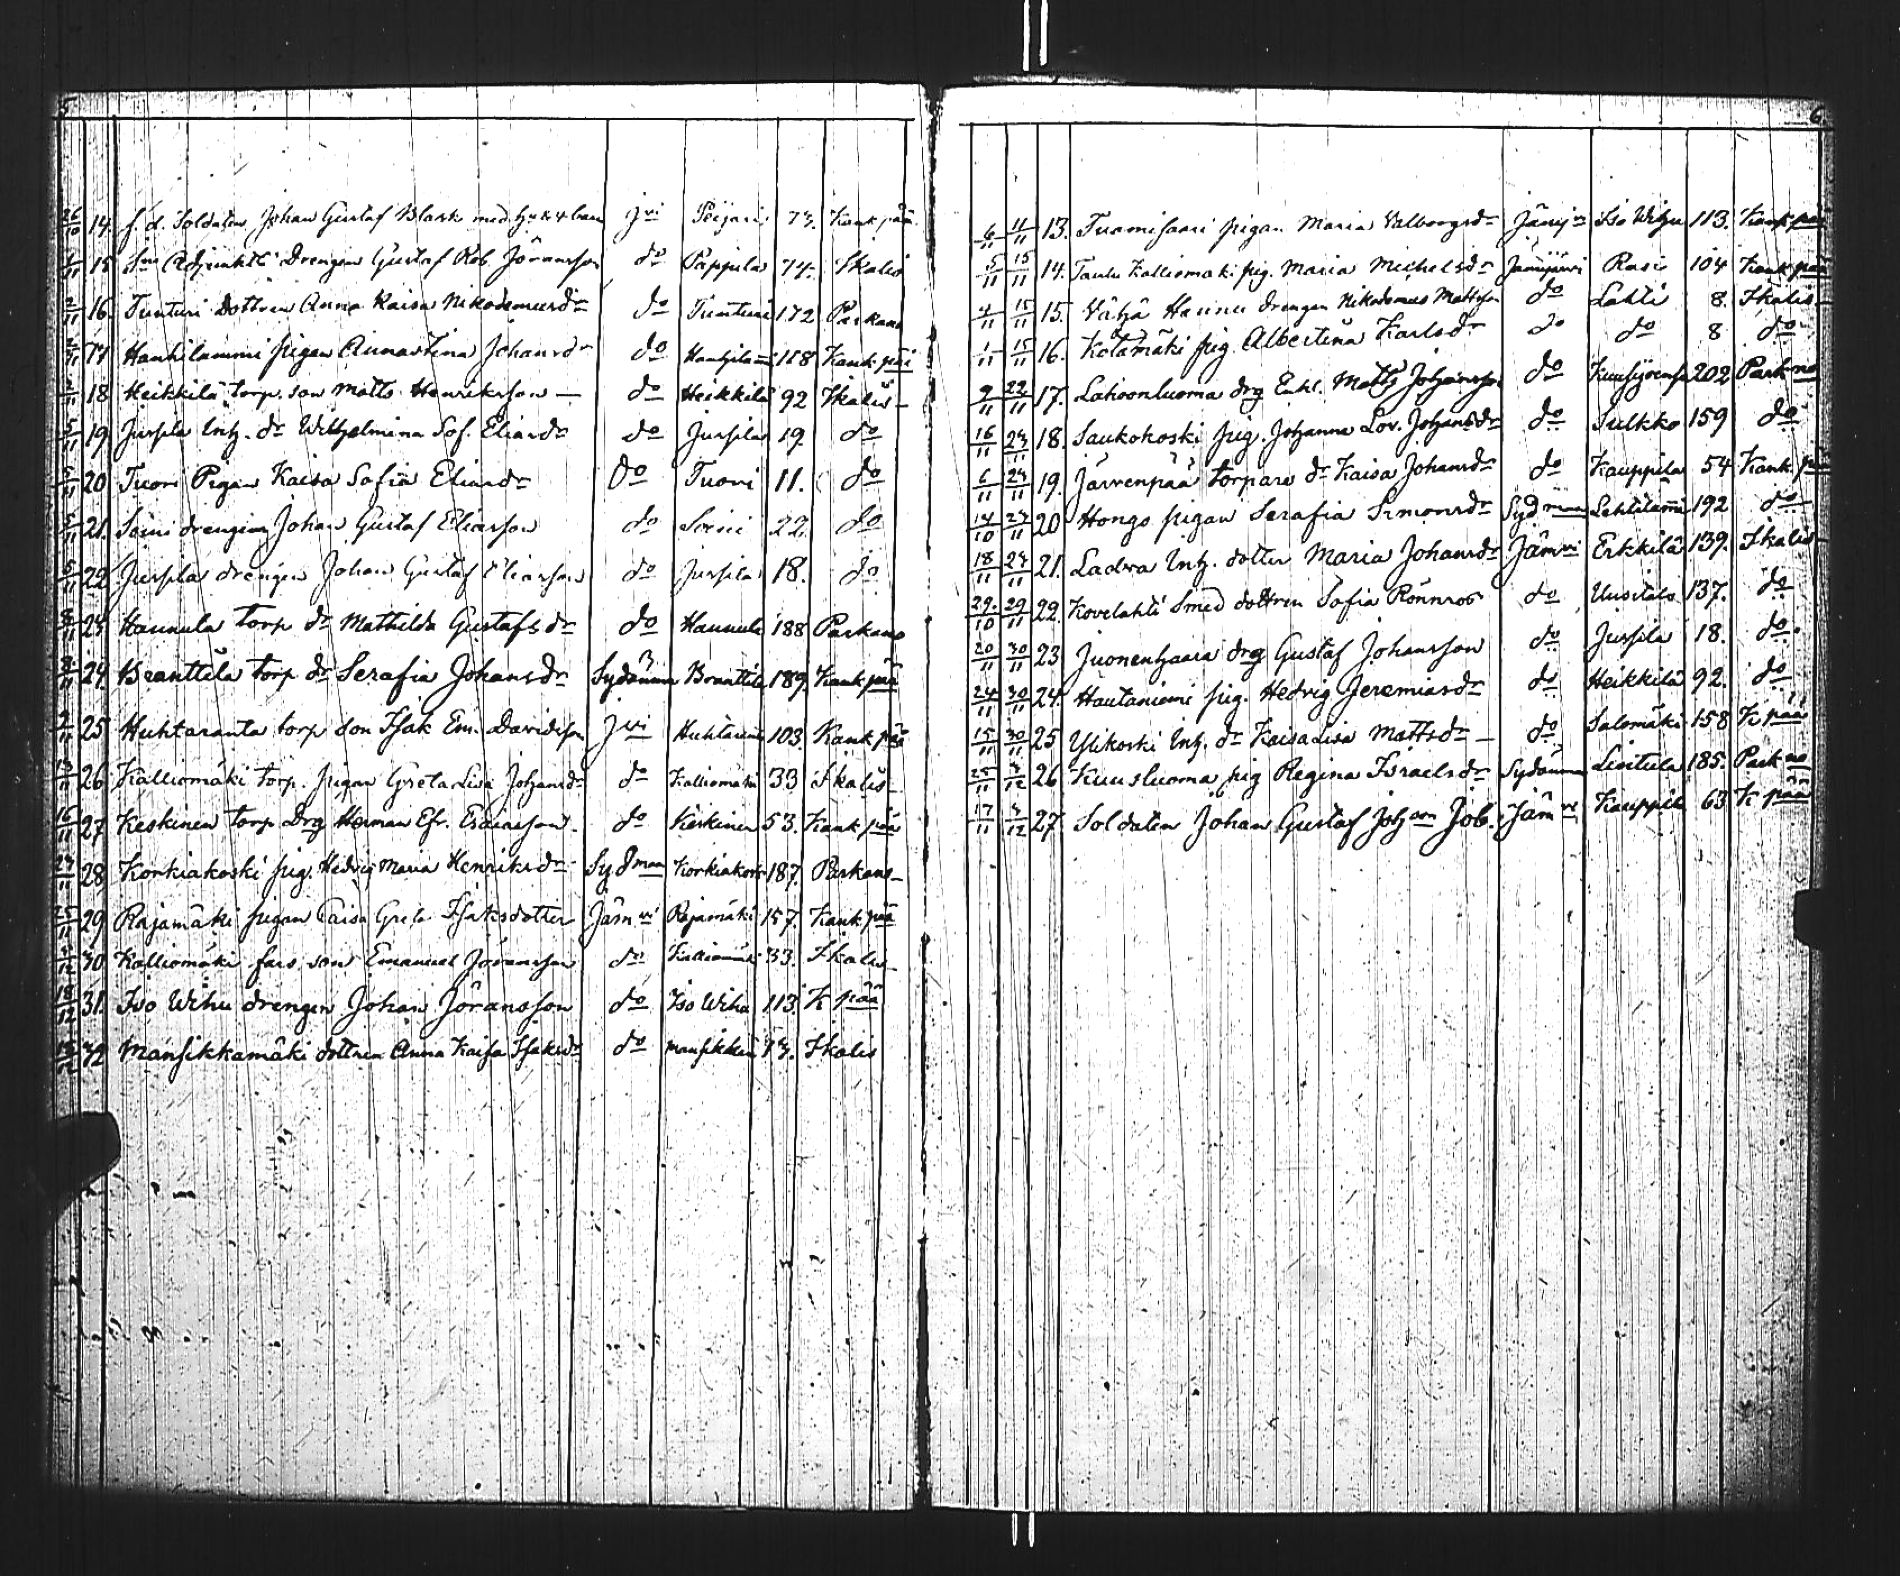 5.
26/10 14. f. d. Soldaten Johan Gustaf Blask med h: Jvi Peijari 73. Kankpää
1/11 15 Adjunkts Drengen Gustaf Rob Jöransson do Pappila 74. Ikalis
2/11 16. Tunturi Dottren Anna Kaisa Nikodemusdr do Tunturi 172 Parkano
2/11 17 Hanhilammi pigan Annastina Johansdr do 118 Kankpää
2/11 18 Heikkilä torp. son Matts Henriksson — do Heikkilä 92 Ikalis
5/11 19. Juspla Inh. dr Wilhelmina Sof. Eliasdr do Juspla 19. do
5/11 20 Tuori Pigan Kaisa Sofia Eliasdr Do Tuori 11. do
5/11 21. Soini drengen Johan Gustaf Eliasson do Soini 22. do
5/11 22 Juspla drengen Johan Gustaf Eliasson do Juspla 18. do
8/11 23 Hannula torp dr Mathilda Gustafsdr do Hannula 188 Parkano
8/11 24. Branttila torp dr Serafia Johansdr Sydänmaa Branttila 189. Kankpää
25 Huhtaranta torp son Isak Em. Davidsson Jvi Huhtaranta 103. Kankpää
13/11 26 Kalliomäki torp. pigan Greta Lisa Johansdr do Kalliomäki 33 Ikalis
16/11 27 Keskinen torp Drg Herman Efr. Esaiasson do Keskinen 53. Kankpää
28 Korkiakoski pig. Hedvig Maria Henriksdr Sydmaa Korkiakoski 187. Parkano
25/11 29 Rajamäki pigan Caisa Greta Isaksdotter Jämvi Rajamäki 157. Kankpää
30 Kalliomäki son Emanuel Jöransson do Kalliomäki 33. Ikalis
18/12 31. Iso Wihu drengen Johan Jöransson do Iso Wihu 113. Kpää
32 Mansikkamäki dottren Anna Kaisa Isaksdr do 13. Ikalis
6.
6/11 11/11 13. Tuomisaari pigan Maria Valborgsdr Jämijvi Iso Wihu 113. Kankpää
5/11 15/11 14. Taulu Kalliomäki pig. Maria Michelsdr Jämijärvi Rasi 104 Kankpää
4/11 15/11 15. Vähä Hannu drengen Nikodemus Mattsson do Lahti 8. Ikalis
1/11 15/11 16. Kotamäki pig. Albertina Karlsdr do do 8 do
9/11 22/11 17. Lahoonluoma drg Enk. Matts Johansson do 202 Parkno
16/11 23/11 18. Saukokoski pig. Johanna Lov. Johansdr do Sulkko 159 do
6/11 23/11 19. Järvenpää torpare dr Kaisa Johansdr do Kauppila 54 Kankpää
14/10 23/11 20 Hongo pigan Serafia Simonsdr Sydmaa Lehtilammi 192 do
18/11 23/11 21. Ladva Inh. dotter Maria Johansdr Jämvi Erkkilä 139. Ikalis
29/10 29/11 22. Kovelahti Smed dottren Sofia Rönnros do Uusitalo 137. do
20/11 30/11 23 Juonenhaara drg Gustaf Johansson do Juspla 18. do
24/11 30/11 24. Hautaniemi pig. Hedvig Jeremiasdr do Heikkilä 92. do
15/11 30/11 25 Ylikoski Inh. dr Kaisa Lisa Mattsdr — do Salomäki 158 Kpää
25/11 7/12 26 Kuusluoma pig Regina Israelsdr Sydänmaa Linttula 185. Parkno
17/11 7/12 27 Soldaten Johan Gustaf Johson Job. Jämvi Kauppila 63 Kpää